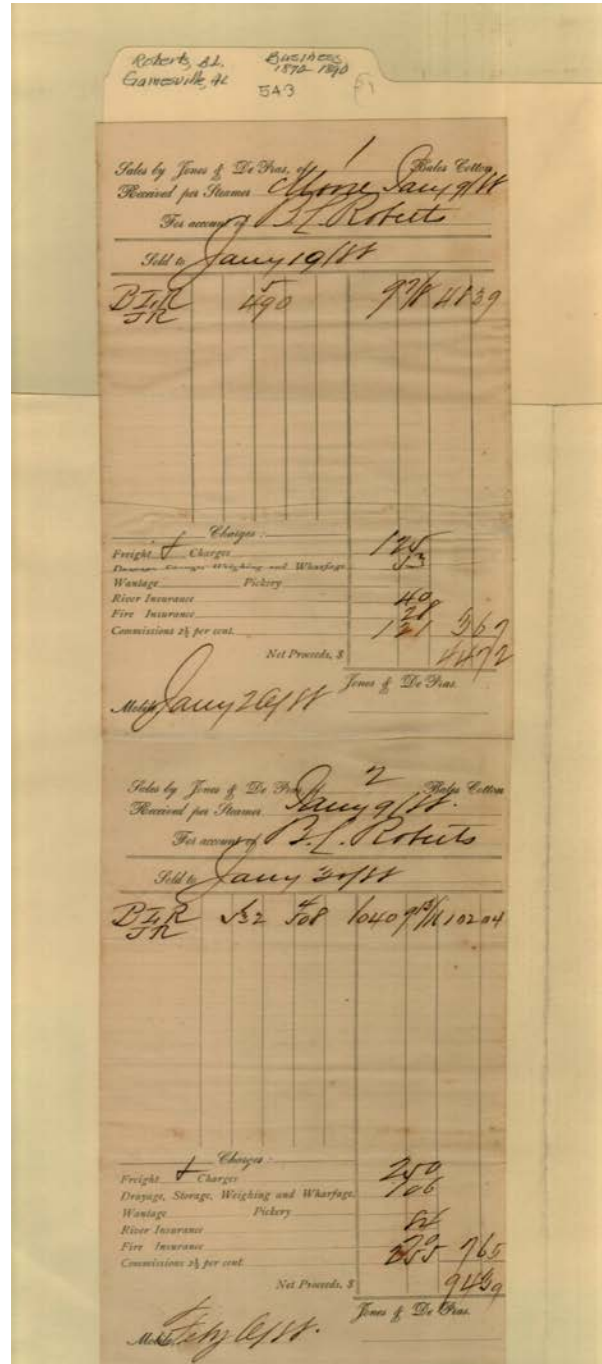 Roberts, B.L. Business
Gainesville, AL 1870-1890
543
1
Sales by Jones & De Pras, of Bales Cotton
Received per Steamer Jany 9/88
For account of B L Roberts
Sold to Jany 19/88
BLR 5 490 9 7/8 48 39
JR
Charges:
Freight & Charges 125
Drayage, Storage, Weighing and Wharfage 53
Wantage Pickery
River Insurance 40
Fire Insurance 28
Commissions 2½ per cent. 121 3 67
Net Proceeds, $ 44 72
Jones & De Pras.
Mobile, Jany 26/88
2
Sales by Jones & De Pras, of Bales Cotton
Received per Steamer Jany 9/88.
For account of B L. Roberts
Sold to Jany 30/88
BLR 532 508 1040 9 13/16 102 04
JR
Charges:
Freight & Charges 250
Drayage, Storage, Weighing and Wharfage. 106
Wantage Pickery
River Insurance
Fire Insurance
Commissions 2½ per cent 255 7 65
Net Proceeds, $ 94 39
Jones & De Pras.
Mobile, Feby 6/88.